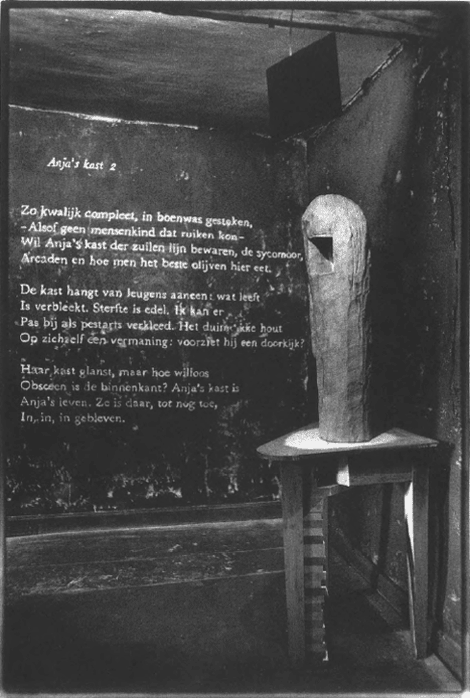 Anja's kast 2
Zo kwalijk compleet, in boenwas gestoken,
-Alsof geen mensenkind dat ruiken kon-
Wil Anja's kast der zuilen lijn bewaren, de sycomoor,
Arcaden en hoe men het beste olijven hier eet.
De kast hangt van leugens aaneen: wat leeft
Is verbleekt. Sterfte is edel. Ik kan er
Pas bij als pestarts verkleed. Het hout
Op zichzelf een vermaning: voorziet hij een doorkijk?
Haar kast glanst, maar hoe willoos
Obsceen is de binnenkant? Anja's kast is
Anja's leven. Ze is daar, tot nog toe,
In, in, in gebleven.